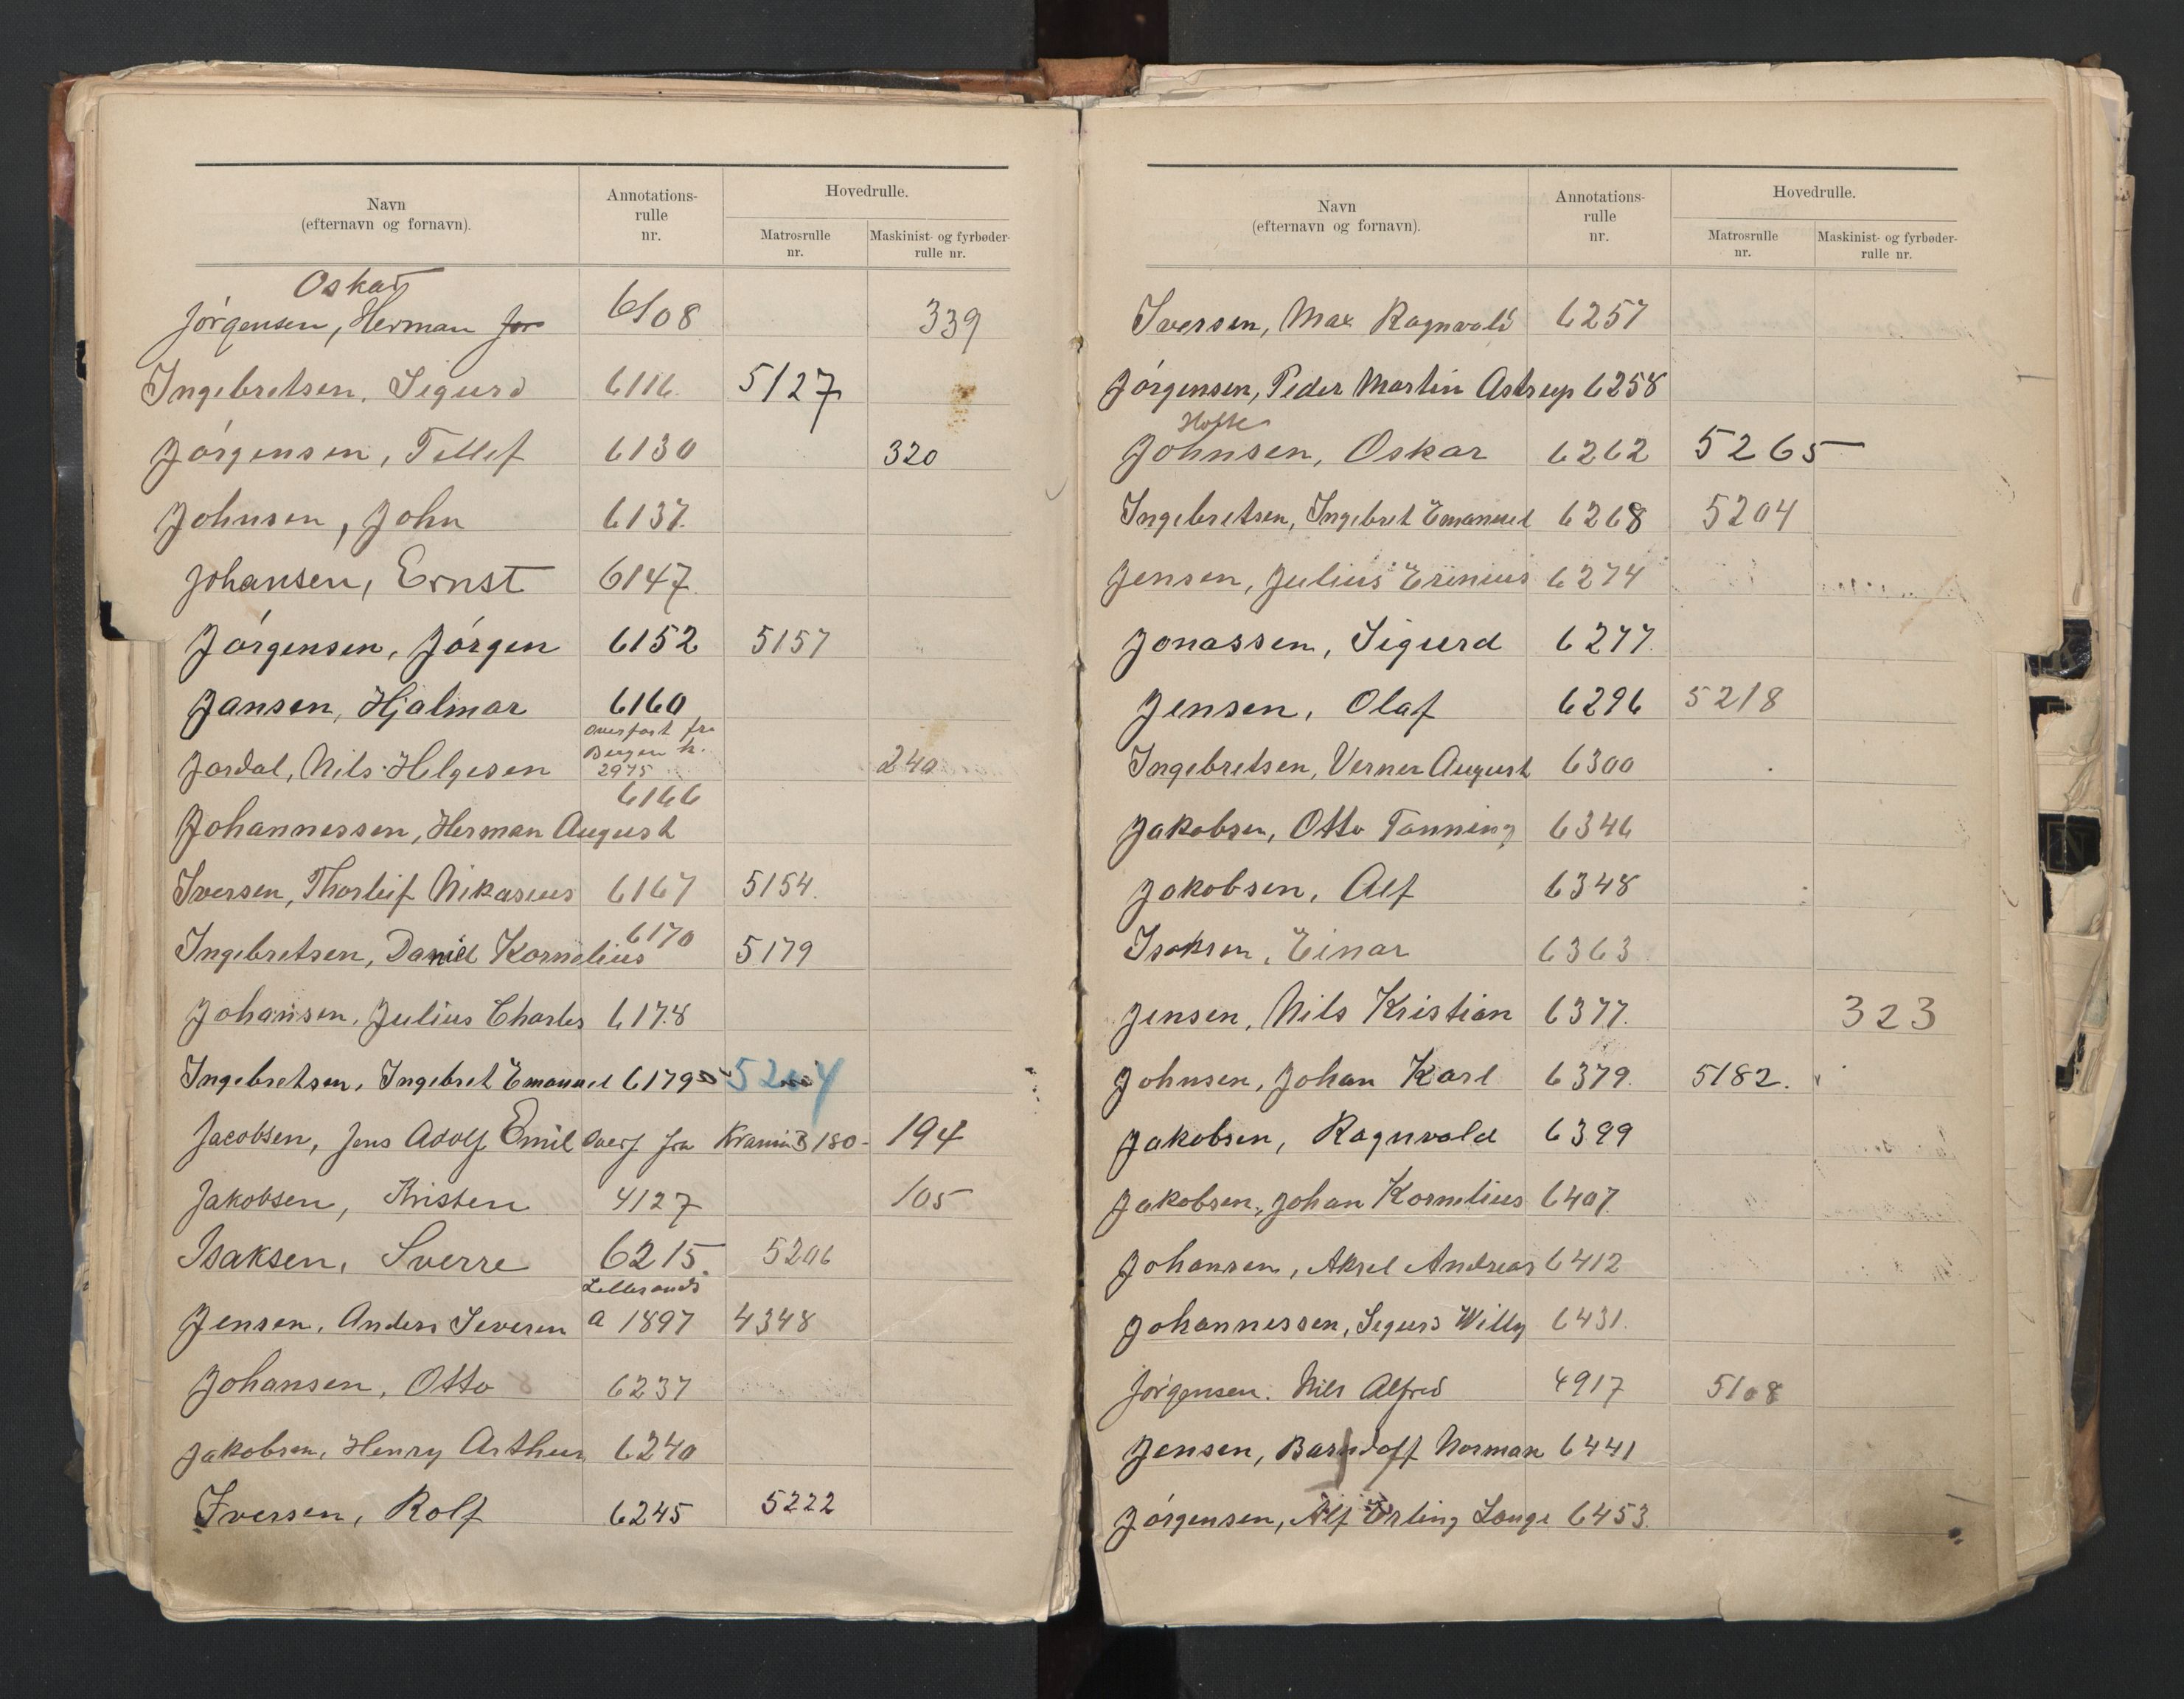 Navn
(efternavn og fornavn).
Annotations-
rulle
nr.
Hovedrulle.
Matrosrulle
nr.
Maskinist- og fyrbøder-
rulle nr.
Oskar
Jörgensen, Herman 6108 339
Ingebretsen, Sigurd 6116. 5127
Jörgensen, Tellef 6130 320
Johnsen, John 6137.
Johansen, Ernst 6147.
Jörgensen, Jörgen 6152 5157
Jansen, Hjalmar 6160
overført fra
Bergen k.
Jordal, Nils Helgesen 2975 240
6166
Johannessen, Herman August
Iversen, Thorleif Nikasius 6167 5154.
Ingebretsen, Daniel Kornelius 6170 5179
Johansen, Julius Charles 6178
Ingebretsen, Ingebret Emanuel 6179 5204
Jacobsen, Jens Adolf Emil Overf fra 180- 194
Jakobsen, Kristen 4127 105
Isaksen, Sverre 6215. 5206
Lillesands
Jensen, Anders Severin a 1897 4348
Johansen, Otto 6237
Jakobsen, Henry Arthur 6240
Iversen, Rolf 6245 5222
Navn
(efternavn og fornavn).
Annotations-
rulle
nr.
Hovedrulle.
Matrosrulle
nr.
Maskinist- og fyrbøder-
rulle nr.
Iversen, Max Ragnvald 6257
Jörgensen, Peder Martin Astrup 6258
Johnsen, Oskar 6262 5265
Ingebretsen, Ingebret Emanuel 6268 5204
Jensen, Julius Erenius 6274
Jonassen, Sigurd 6277.
Jensen, Olaf 6296 5218
Ingebretsen, Verner August 6300
Jakobsen, Otto Tanning 6346
Jakobsen, Alf 6348
Isaksen, Einar 6363
Jensen, Nils Kristian 6377. 323
Johnsen, Johan Karl 6379. 5182.
Jakobsen, Ragnvald 6399
Jakobsen, Johan Kornelius 6407.
Johansen, Aksel Andreas 6412
Johannessen, Sigurd Willy 6431.
Jörgensen. Nils Alfred 4917 5108
Jensen, Barndoff Norman 6441
Jörgensen, Alf Erling Lange 6453.